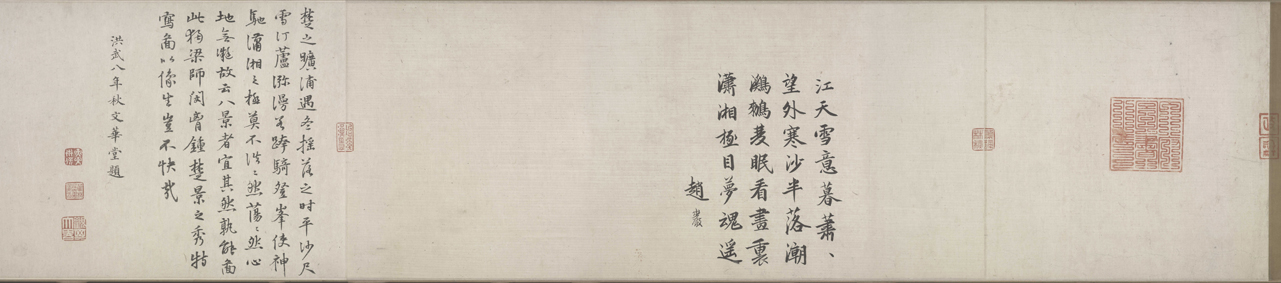 江天雪意暮蕭、
望外寒沙半落潮
鸂鶒薆眠看畫裏
瀟湘極目夢魂遥
趙巖
楚之曠浦遇冬搖落之時平沙尺
雪汀蘆渺漫若跨騎登峯使神
馳瀟湘之極莫不洪洪然蕩蕩然心
地無凝故云八景者宜其然孰能圖
此獨梁師閔胷鍾楚景之秀特
寫圖以像生豈不快哉
洪武八年秋文華堂題